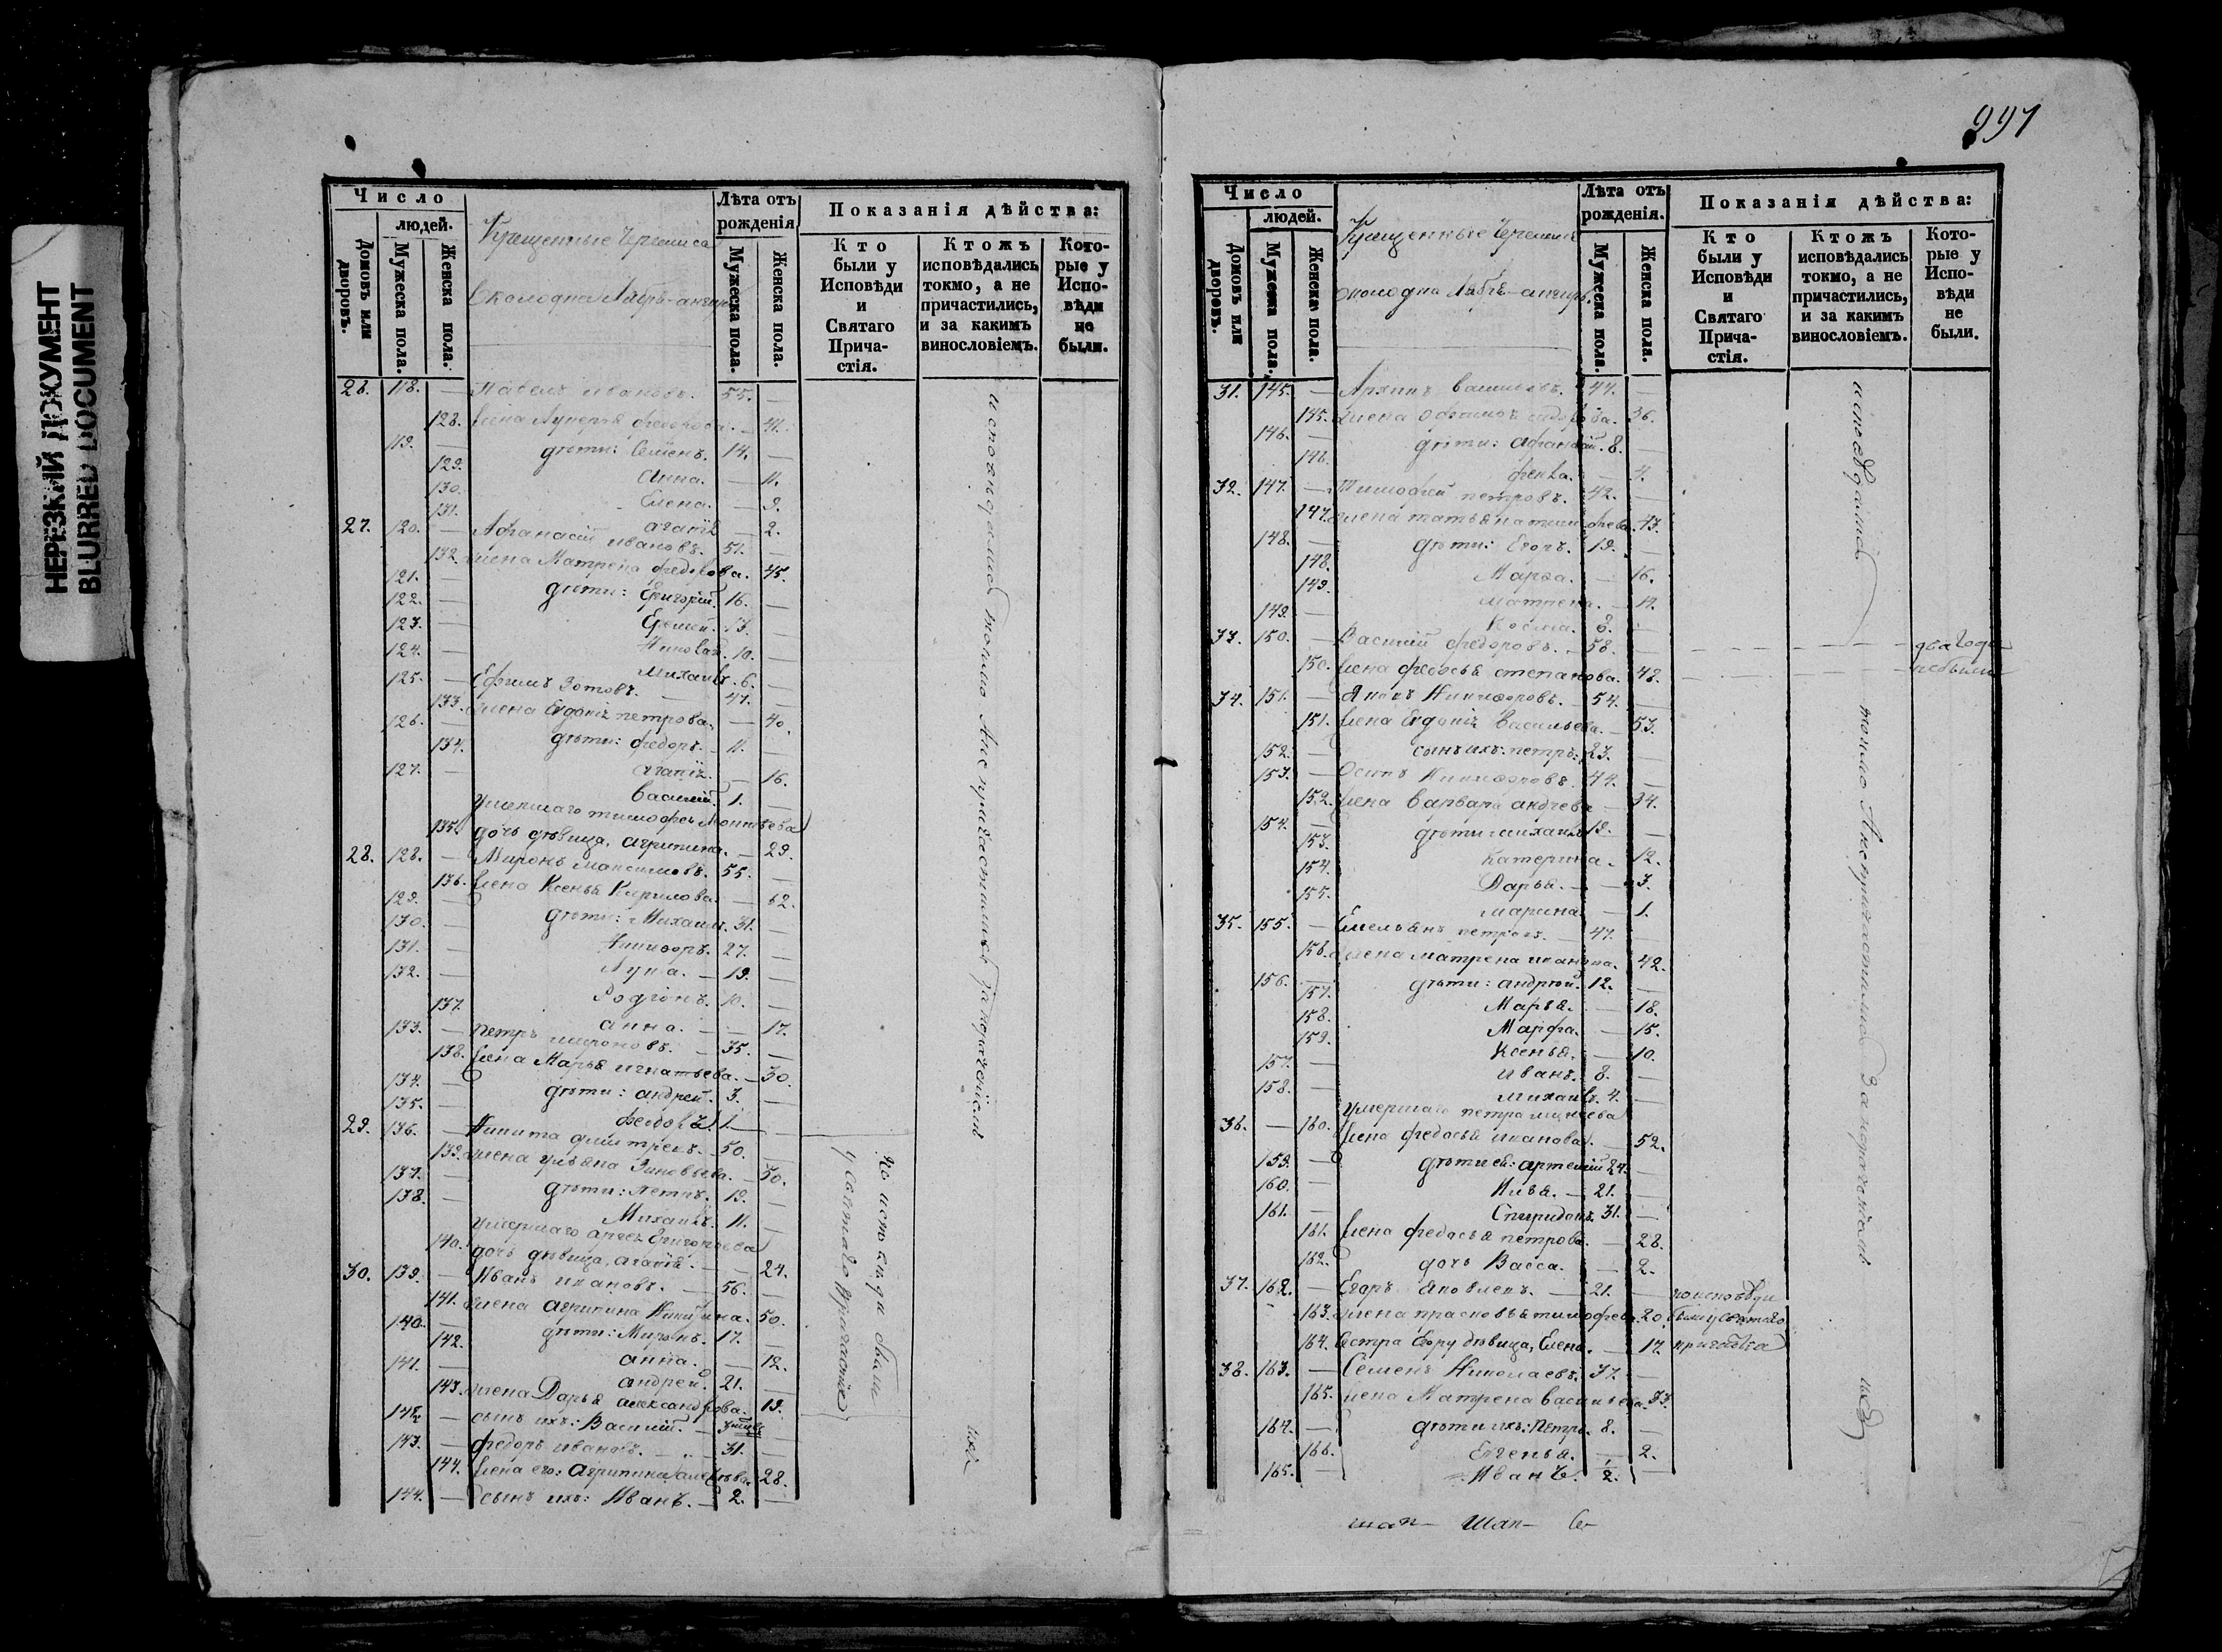 НЕРЕЗКИЙ ДОКУМЕНТ
BLURRED DOCUMENT
Число
людей.
Домовъ или дворовъ.
Мужеска пола.
Женска пола.
Крещенные Черемиса
околодка
Лѣта отъ рожденія
Мужеска пола.
Женска пола.
Показанія дѣйства:
Кто были у Исповѣди и Святаго Прича-стія.
Ктожъ исповѣдались токмо, а не причастились, и за какимъ винословіемъ.
Кото-рые у Испо-вѣди не были.
26. 118. — Павелъ Ивановъ. 55. —
128. жена Лукерья Федорова. — 41.
119. — дѣти: Семенъ. 14. —
129. Анна. — 11.
130. Елена. — 9.
131. Агапія — 2.
27. 120. — Афанасій Ивановъ. 51. —
132. жена Матрена Федорова. 45.
121. — дѣти: Григорій. 16. —
122. — 13. —
123. — Николай. 10. —
124. — Михаилъ. 6. —
125. — Ефимъ Зотовъ. 47. —
133. жена Евдокія Петрова. — 40.
126. — дѣти: Федоръ. 11. —
134. Агапія. — 16.
127. — Василій. 1. —
умершаго Тимофея
135. дочь дѣвица, Агрипина. — 29.
28. 128. — Миронъ Максимовъ. 55. —
136. жена Ксенья Кирилова. — 62.
129. — дѣти: Михаилъ. 31. —
130. — Никифоръ. 27. —
131. — Лука. — 19. —
132. — Родіонъ. 10. —
137. Анна. — — 17.
133. — Петръ Мироновъ. 35. —
138. жена Марья Игнатьева. — 30.
134. — дѣти: Андрей. 3. —
135. — Федоръ 1. —
29. 136. — Никита Дмитреевъ. 50. —
139. жена Ульяна Зиновьева. — 50.
137. — дѣти: 19. —
138. — Михаилъ. 11. —
умершаго Григорьева
140. дочь дѣвица, Агапія. — 24.
30. 139. — Иванъ Ивановъ. 56. —
141. жена Агрипина Никитина. 50.
140. — дѣти: Миронъ. 17. —
142. Анна. — 12.
141. — Андрей. 21. —
143. жена Дарья Александрова. 19.
142. — сынъ ихъ: Василій.
143. — Федоръ Ивановъ. 31. —
144. жена его: Агрипина 28.
144. — сынъ ихъ: Иванъ. — 2. —
исповѣдались токмо а не причастились за нераченіемъ
по исповѣди были
у Святаго Причастія
997
Число
людей.
Домовъ или дворовъ.
Мужеска пола.
Женска пола.
Крещенные Черемиса
околодка
Лѣта отъ рожденія.
Мужеска пола.
Женска пола.
Показанія дѣйства:
Кто были у Исповѣди и Святаго Прича-стія.
Ктожъ исповѣдались токмо, а не причастились, и за какимъ винословіемъ.
Кото-рые у Испо-вѣди не были.
31. 145. — Архипъ Васильевъ. 44. —
145. жена 36.
146. — дѣти: Афанасій. 8. —
146. Фекла. — 4.
32. 147. — Тимофей Петровъ. 42. —
147. жена Татьяна Тимофеева. 43.
148. — дѣти: Егоръ. 19. —
148. Марфа. — 16.
149. Матрена. — 11.
149. — Косма. 8. —
33. 150. — Василій Федоровъ. 58. —
150. жена Федосья Степанова. 48.
два года не были
34. 151. — Яковъ Никифоровъ. — 54. —
151. жена Евдокія Васильева. — 53.
152. — сынъ ихъ: Петръ. 23. —
153. — Осипъ Никифоровъ. 44. —
152. жена Варвара Андреева — 34.
154. — дѣти: Михаилъ 19. —
153. Катерина. — 12.
154. Дарья. — 3.
155. Марина. — 1.
35. 155. — Емельянъ Петровъ. — 47. —
156. жена Матрена Иванова. 42.
156. — дѣти: Андрей. 12. —
157. Марья. — 18.
158. Марфа. — 15.
159. Ксенья. — 10.
157. — Иванъ. 8. —
158. — Михаилъ. 4. —
умершаго Петра
36. — 160. жена Федосья Иванова. — 52.
159. — дѣти ея: Артемій 24. —
160. — Илья. — 21. —
161. — Спиридонъ. 31. —
161. жена Федосья Петрова. — 28.
162. дочь Васса. — 2.
37. 162. — Егоръ Яковлевъ. — 21. —
163. жена Прасковья Тимофеева. 20.
164. Сестра Егору дѣвица, Елена. — 17.
по исповѣди
были у святаго
причастія
38. 163. — Семенъ Николаевъ. 37. —
165. жена Матрена Васильева. 33.
164. — дѣти ихъ: Петръ. 8. —
166. Евгенья. — 2.
165. — Иванъ. 1/2. —
исповѣдались токмо а не причастились за нераченіемъ